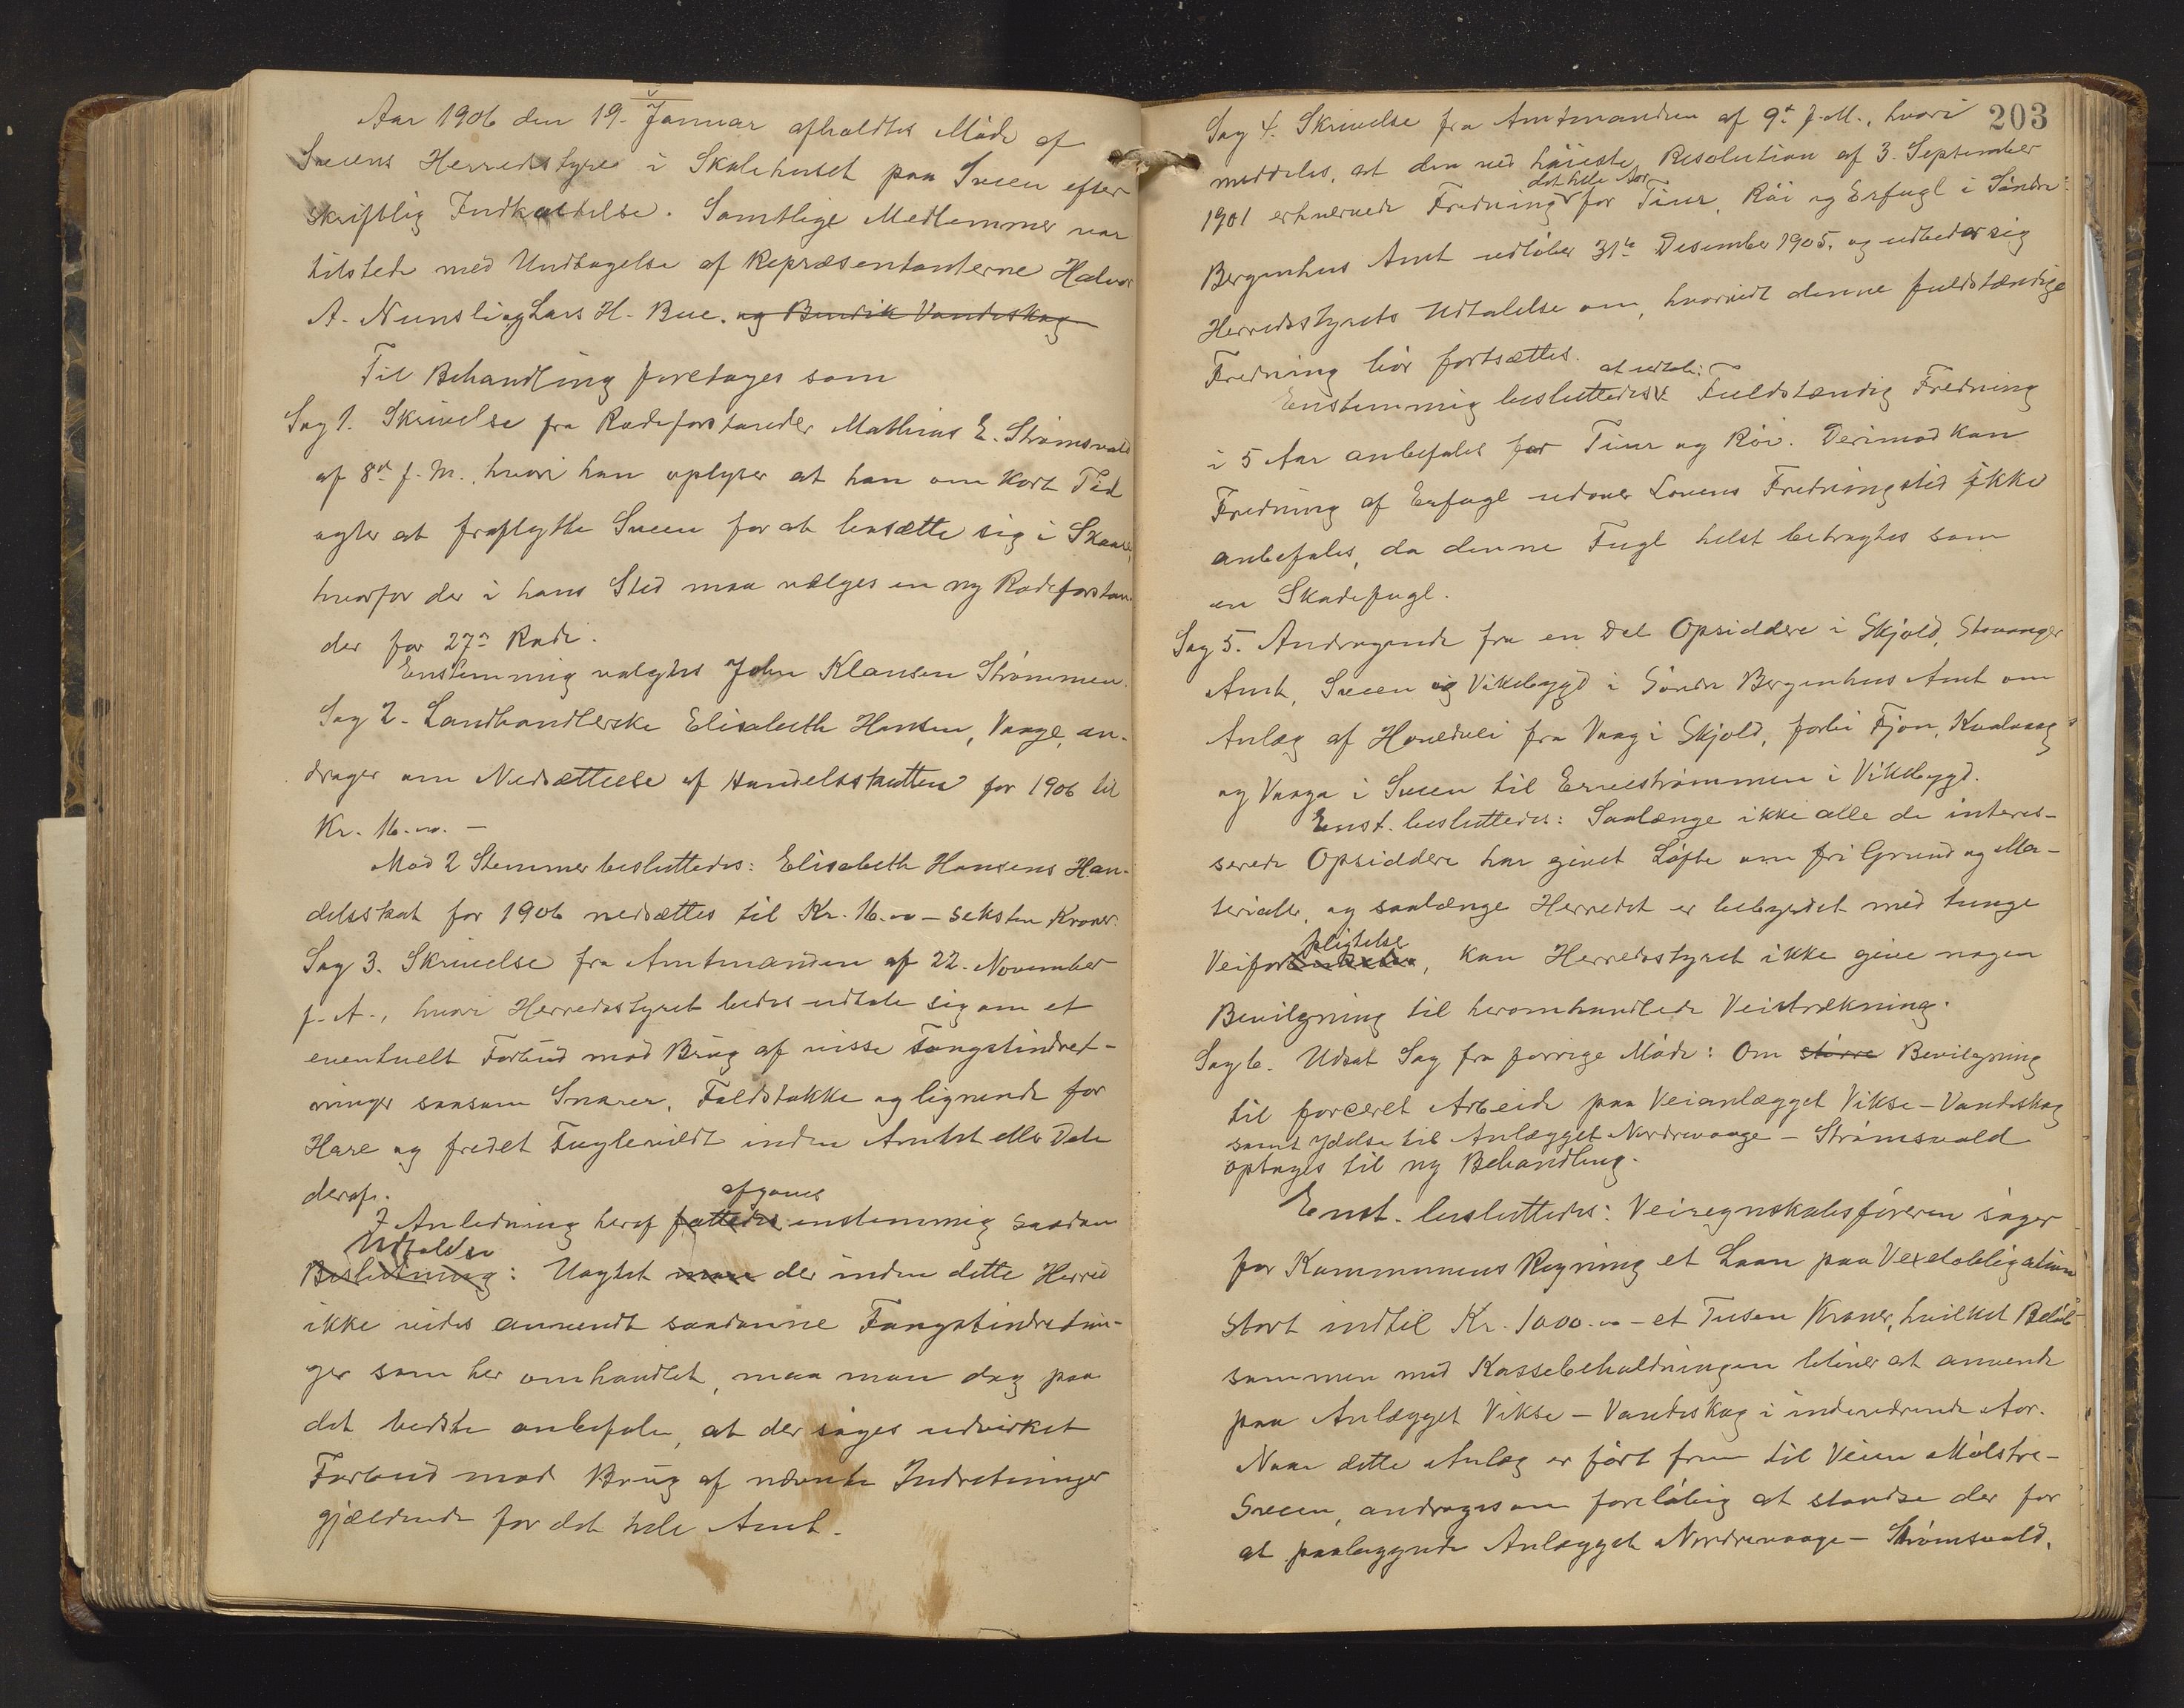 Aar 1906 den 19. Januar afholdtes Møde af
Sveens Herredsstyre i Skolehuset paa Sveen efter
skriftlig Indkaldelse. Samtlige Medlemmer var
tilstede med Undtagelse af Repræsentanterne Halvor
A. Nunsli og Lars H. Bue. og Bendik Vandeskog
Til Behandling foretoges som
Sag 1. Skrivelse fra Rodeforstander Mathias E. Strømsvold
af 8de f. M., hvori han oplyser at han om kort Tid
agter at fraflytte Sveen for at bosætte sig i Skaare,
hvorfor der i hans Sted maa vælges en ny Rodeforstan-
der for 27de Rode.
Enstemmig valgtes John Klausen Strømmen.
Sag 2. Landhandlerske Elisabeth Hansen, Vaage, an-
drager om Nedsættelse af Handelsskatten for 1906 til
Kr. 16.00. –
Mod 2 Stemmer besluttedes: Elisabeth Hansens Han-
delsskat for 1906 nedsættes til Kr. 16.00 – seksten Kroner.
Sag 3. Skrivelse fra Amtmanden af 22. November
f. A., hvori Herredsstyret bedes udtale sig om et
eventuelt Forbud mod Brug af visse Fangstindret-
ninger saasom Snarer, Faldstokke og lignende for
Hare og fredet Fuglevildt inden Amtet eller Dele
deraf.
afgaves
I Anledning heraf fattedes enstemmig saadan
Udtalelse
Beslutning: Uagtet man der inden dette Herred
ikke vides anvendt saadanne Fangstindretnin-
ger som her omhandlet, maa man dog paa
det bedste anbefale, at der søges udvirket
Forbud mod Brug af nævnte Indretninger
gjældende for det hele Amt.
203
Sag 4. Skrivelse fra Amtmanden af 9de f. M., hvori
meddeles, at den ved høieste Resolution af 3. September
det hele Aar
1901 erhvervede Fredning for Tiur, Røi og Erfugl i Søndre
Bergenhus Amt udløber 31te Desember 1905, og udbeder sig
Herredsstyrets Udtalelse om, hvorvidt denne fuldstændige
Fredning bør fortsættes.
at udtale:
Enstemmig besluttedes Fuldstændig Fredning
i 5 Aar anbefales for Tiur og Røi. Derimod kan
Fredning af Erfugl udover Lovens Fredningstid ikke
anbefales, da denne Fugl helst betragtes som
en Skadefugl.
Sag 5. Andragende fra en Del Opsiddere i Skjold, Stavanger
Amt, Sveen og Vikebygd i Søndre Bergenhus Amt om
Anlæg af Hovedvei fra Vaag i Skjold, forbi Fjon, Kvalvaag
og Vaaga i Sveen til Ervestrømmen i Vikebygd.
Enst. besluttedes: Saalænge ikke alle de interes-
serede Opsiddere har givet Løfte om fri Grund og Ma-
terialer, og saalænge Herredet er bebyrdet med tunge
pligtelser
Veifor, kan Herredsstyret ikke give nogen
Bevilgning til heromhandlede Veistrækning.
Sag 6. Udsat Sag fra forrige Møde: Om større Bevilgning
til forceret Arbeide paa Veianlægget Vikse – Vandeskog
samt Ydelse til Anlægget Nordrevaage – Strømsvold
optages til ny Behandling.
Enst. besluttedes: Veiregnskabsføreren søger
for Kommunens Regning et Laan paa Vexelobligation
stort indtil Kr. 1000.00 – et Tusen Kroner, hvilket Beløb
sammen med Kassebeholdningen bliver at anvende
paa Anlægget Vikse – Vandeskog i indeværende Aar.
Naar dette Anlæg er ført frem til Veien Mølstre –
Sveen, andrages om foreløbig at standse der for
at paabegynde Anlægget Nordrevaage – Strømsvold.